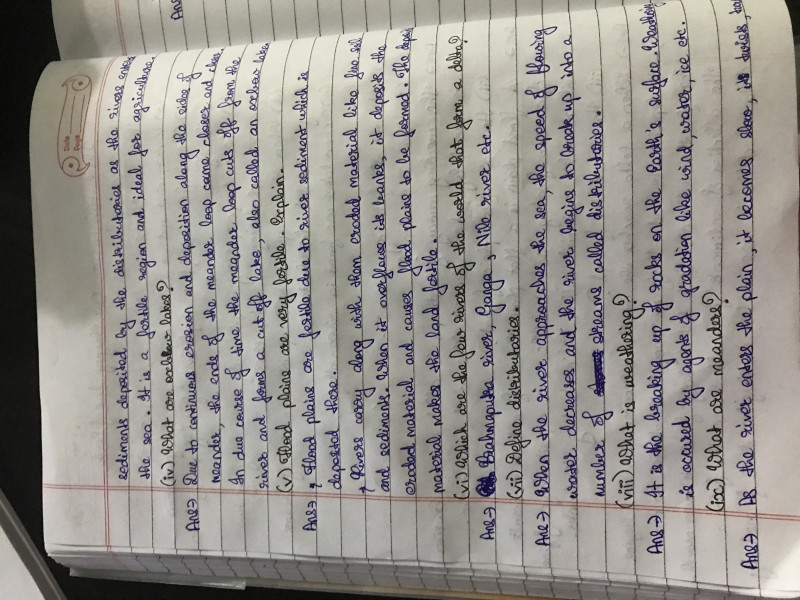 Ans
Date
Page
sediments deposited by the distributaries as the river enters
the sea. It is a fertile region and ideal for agriculture.
(iv) What are oxbow lakes?
Ans→ Due to continuous erosion and deposition along the sides of
meander, the ends of the meander loop come closer and closer.
In due course of time the meander loop cuts off from the
river and forms a cut off lake, also called an oxbow lake
(v) Flood plains are very fertile. Explain.
Ans→ Flood plains are fertile due to river sediment which is
deposited there.
→ Rivers carry along with them eroded material like fine soil
and sediments. When it overflows its banks, it deposits the
eroded material and causes flood plains to be formed. The deposited
material makes the land fertile.
(vi) Which are the four rivers of the world that form a delta?
Ans→ Brahmaputra river, Ganga, Nile river etc.
(vii) Define distributaries.
Ans→ When the river approaches the sea, the speed of flowing
water decreases and the river begins to break up into a
number of streams called distributaries.
(viii) What is weathering?
Ans→ It is the breaking up of rocks on the Earth's surface. Weathering
is occured by agents of gradation like wind, water, ice etc.
(ix) What are meanders?
Ans→ As the river enters the plain, it becomes slow, it twists,